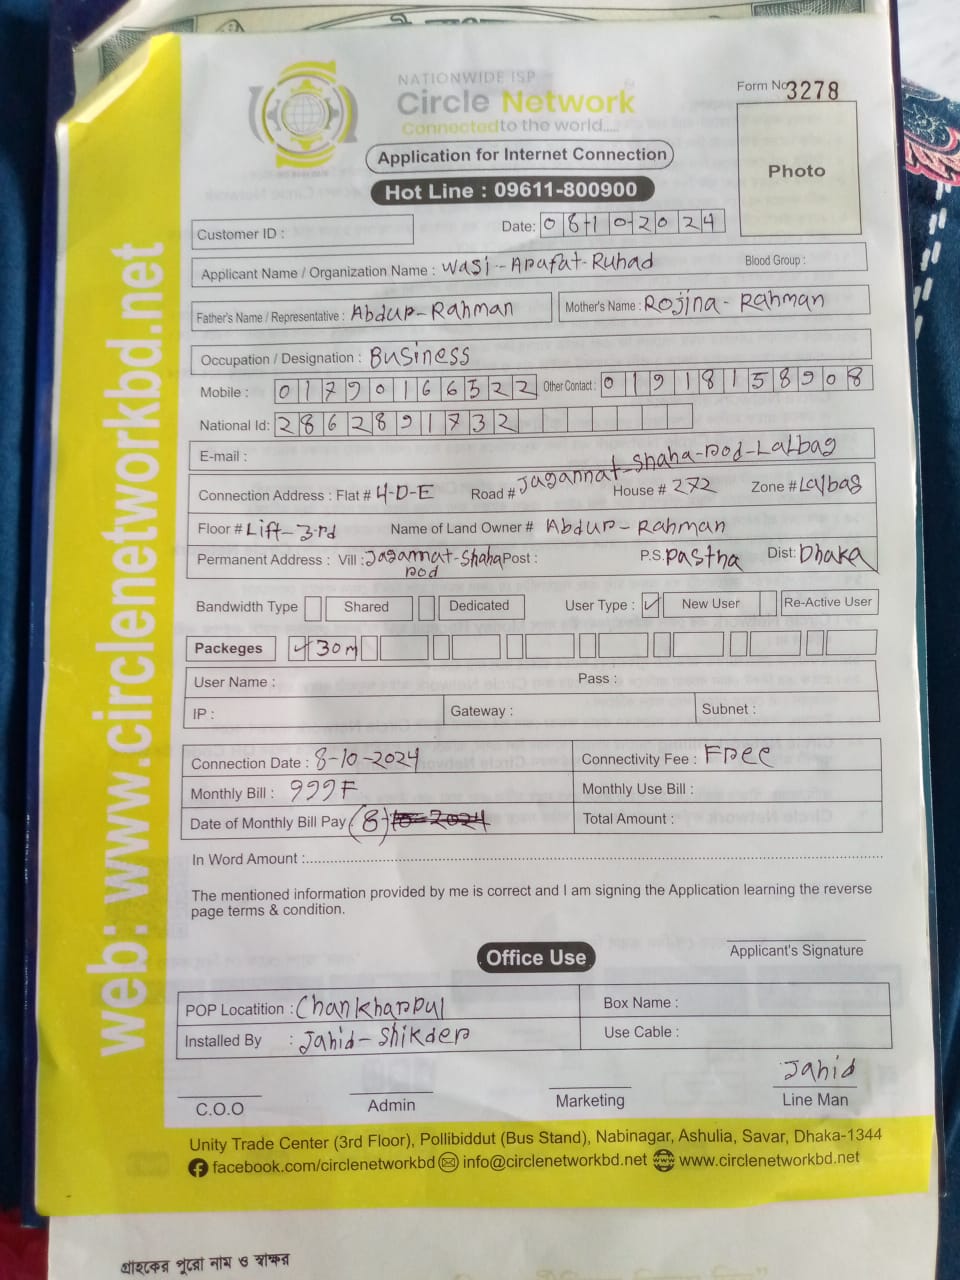 NATIONWIDE ISP
Circle Network
Connected to the world.....
Form No 3278
Photo
Application for Internet Connection
Hot Line : 09611-800900
Customer ID :
Date: 08-10-2024
Applicant Name / Organization Name : Wasi-Arafat-Ruhad Blood Group :
Father's Name / Representative : Abdur-Rahman Mother's Name : Rojina-Rahman
Occupation / Designation : Business
Mobile : 01790166522 Other Contact : 01918158908
National Id: 2862891732
E-mail :
Connection Address : Flat # 4-D-E Road # Jagannat-Shaha-Rod-Lalbag House # 272 Zone # Lalbag
Floor # Lift-3rd Name of Land Owner # Abdur-Rahman
Permanent Address : Vill : Jagannat-Shaha Rod Post : P.S. Pastha Dist: Dhaka
Bandwidth Type Shared Dedicated User Type : ✓ New User Re-Active User
Packeges ✓ 30m
User Name : Pass :
IP : Gateway : Subnet :
Connection Date : 8-10-2024 Connectivity Fee : Free
Monthly Bill : 999৳ Monthly Use Bill :
Date of Monthly Bill Pay (8) Total Amount :
In Word Amount :
The mentioned information provided by me is correct and I am signing the Application learning the reverse
page terms & condition.
Applicant's Signature
Office Use
POP Locatition : Chankharpul Box Name :
Installed By : Jahid-Shikder Use Cable :
Jahid
C.O.O Admin Marketing Line Man
Unity Trade Center (3rd Floor), Pollibiddut (Bus Stand), Nabinagar, Ashulia, Savar, Dhaka-1344
facebook.com/circlenetworkbd info@circlenetworkbd.net www.circlenetworkbd.net
web: www.circlenetworkbd.net
গ্রাহকের পুরো নাম ও স্বাক্ষর